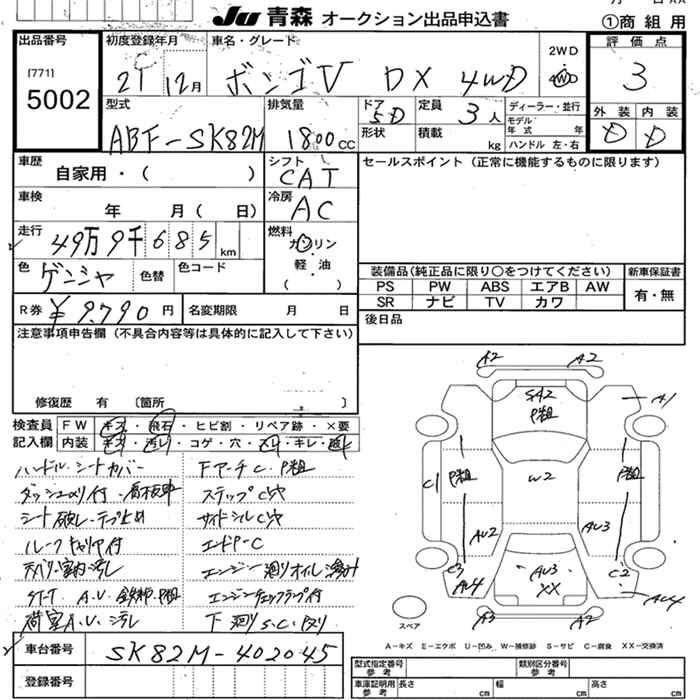 JU 青森 オークション出品申込書
①商組用
出品番号
[771]
5002
初度登録年月
21 12月
車名・グレード
ボンゴV DX 4WD
2WD
4WD
評価点
3
外装 内装
D D
型式
ABF-SK82M
排気量
1800 CC
ドア
5D
形状
定員
3人
積載
kg
ディーラー・並行
モデル
年式 年
ハンドル 左・右
車歴
自家用・( )
シフト
CAT
セールスポイント (正常に機能するものに限ります)
車検
年 月( 日)
冷房
AC
走行
49万9千685 km
燃料
ガソリン
・
軽油
( )
色
ゲンシャ
色替
色コード
装備品(純正品に限り〇をつけてください)
PS PW ABS エアB AW
SR ナビ TV カワ
新車保証書
有・無
R券
¥9,790円
名変期限 月 日
後日品
注意事項申告欄(不具合内容等は具体的に記入して下さい)
修復歴 有 〔箇所 〕
検査員
記入欄
FW キズ・飛石・ヒビ割・リペア跡・×要
内装 キズ・汚レ・コゲ・穴・スレ・キレ・
ハンドル・シートカバー
ダッシュメリ付・看板車
シート破レ・テープ止め
ルーフキャリヤ付
天バリ・室内汚レ
荷室A.U.汚レ
FアーチC. P粗
ステップCケ
サイドシルCケ
エンドP-C
エンジン廻りオイル
エンジンチェックランプ付
下廻りS.C.
A2 A2
SA2
P粗
A1
C1
P粗
W2
P粗
AU2
AU3
C3
AU4
AU3
XX
C2
AU4
A3 A2
スペア
A-キズ E-エクボ U-凹み W-補修跡 S-サビ C-腐食 XX-交換済
車台番号
SK82M-402045
登録番号
型式指定番号
参考
類別区分番号
参考
車庫証明用
参考
長さ cm
幅 cm
高さ cm